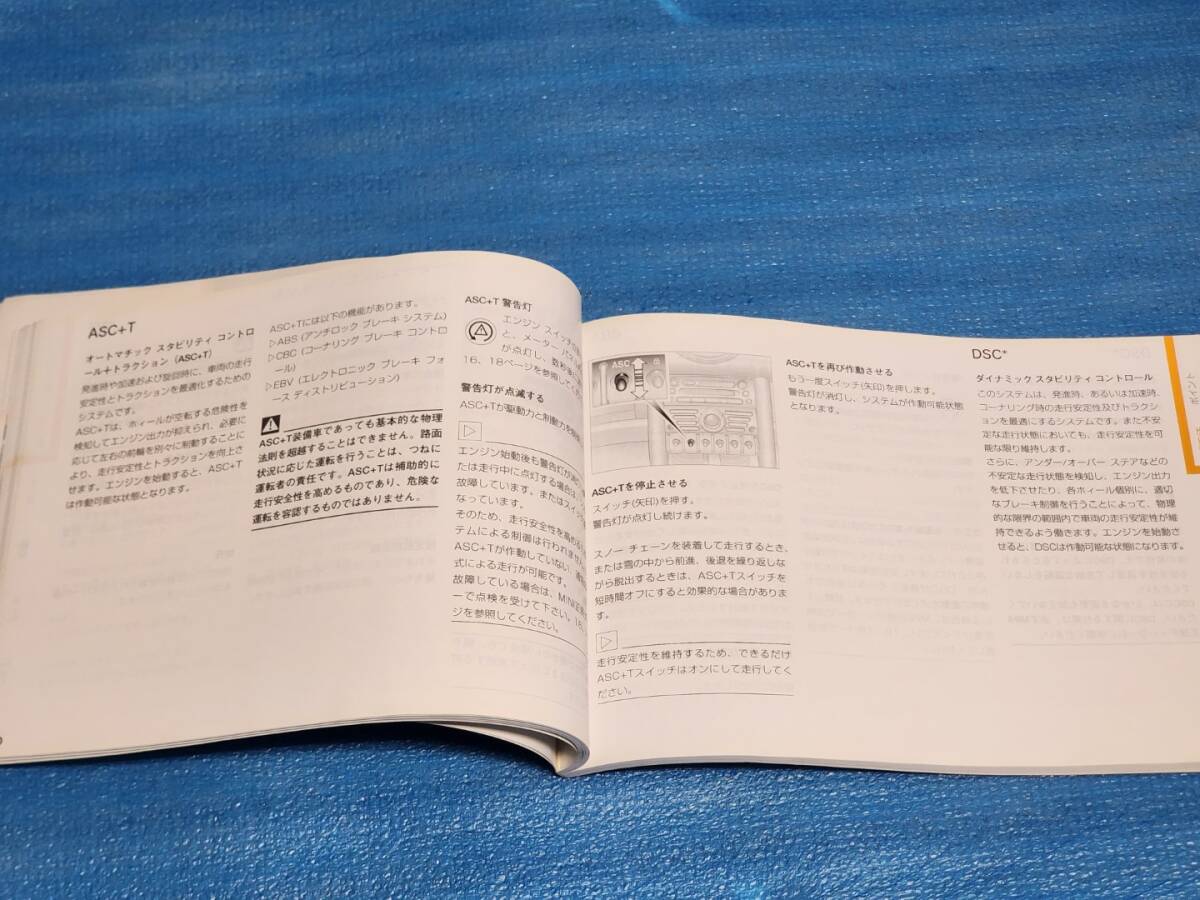 ASC+T
オートマチック スタビリティ コントロ
ール+トラクション (ASC+T)
発進時や加速および旋回時に、車両の走行
安定性とトラクションを最適化するための
システムです。
ASC+Tは、ホィールが空転する危険性を
検知してエンジン出力が抑えられ、必要に
応じて左右の前輪を別々に制動することに
より、走行安定性とトラクションを向上さ
せます。エンジンを始動すると、ASC+T
は作動可能な状態となります。
ASC+Tには以下の機能があります。
▷ABS (アンチロック ブレーキ システム)
▷CBC (コーナリング ブレーキ コントロ
ール)
▷EBV (エレクトロニック ブレーキ フォ
ース ディストリビューション)
ASC+T装備車であっても基本的な物理
法則を超越することはできません。路面
状況に応じた運転を行うことは、つねに
運転者の責任です。ASC+Tは補助的に
走行安全性を高めるものであり、危険な
運転を容認するものではありません。
ASC+T 警告灯
エンジン スイッチ
と、メーター パネル
が点灯し、数秒後
16、18ページを参照してく
警告灯が点滅する
ASC+Tが駆動力と制動力を
エンジン始動後も警告灯が消
たは走行中に点灯する場合は、
故障しています。またはスイッチ
なっています。
そのため、走行安全性を高める
テムによる制御は行われません
ASC+Tが作動していない、通常
式による走行が可能です。
故障している場合は、MINI正規
ーで点検を受けて下さい。16、
ジを参照してください。
ASC
ASC+Tを停止させる
スイッチ(矢印)を押す。
警告灯が点灯し続けます。
スノー チェーンを装着して走行するとき、
または雪の中から前進、後退を繰り返しな
がら脱出するときは、ASC+Tスイッチを
短時間オフにすると効果的な場合がありま
す。
走行安定性を維持するため、できるだけ
ASC+Tスイッチはオンにして走行してく
ださい。
ASC+Tを再び作動させる
もう一度スイッチ(矢印)を押します。
警告灯が消灯し、システムが作動可能状態
となります。
DSC*
ダイナミック スタビリティ コントロール
このシステムは、発進時、あるいは加速時、
コーナリング時の走行安定性及びトラクシ
ョンを最適にするシステムです。また不安
定な走行状態においても、走行安定性を可
能な限り維持します。
さらに、アンダー/オーバー ステアなどの
不安定な走行状態を検知し、エンジン出力
を低下させたり、各ホィール個別に、適切
なブレーキ制御を行うことによって、物理
的な限界の範囲内で車両の走行安定性が維
持できるよう働きます。エンジンを始動さ
せると、DSCは作動可能な状態になります。